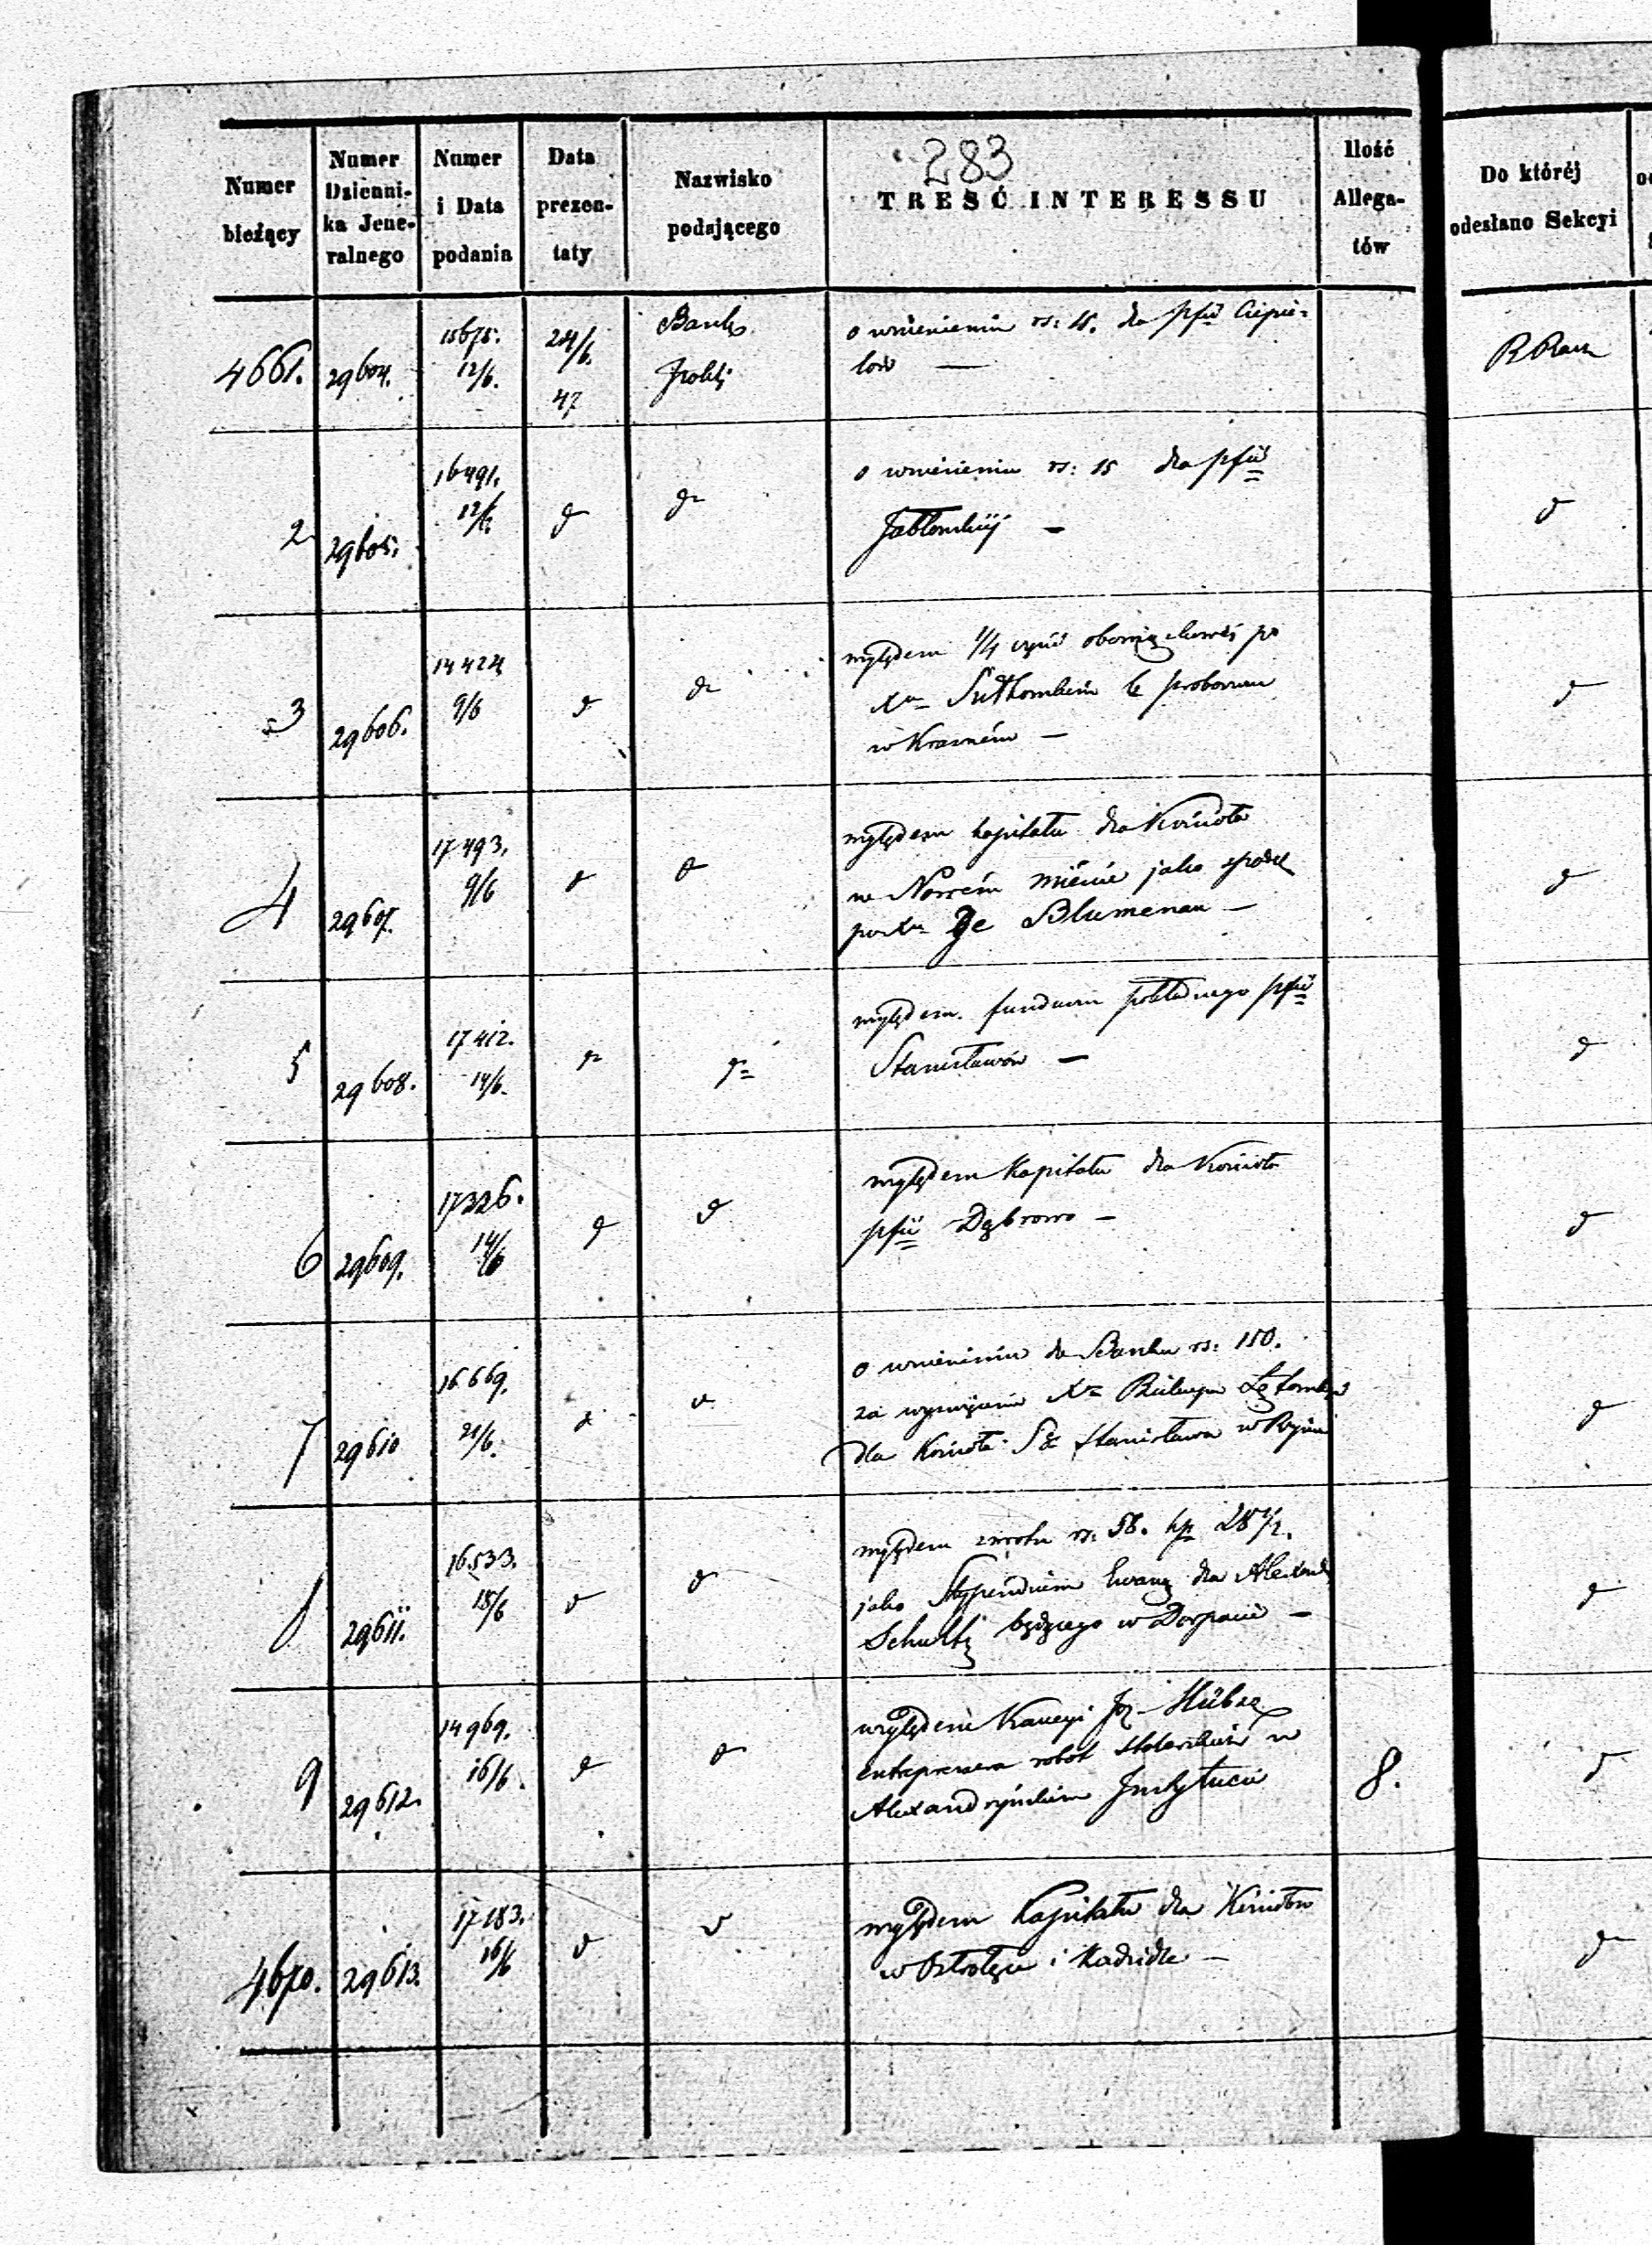 283
Numer bieżący
Numer Dzienni-ka Jene-ralnego
Numer i Data podania
Data prezen-taty
Nazwisko podającego
TREŚĆ INTERESSU
Ilość Allega-tów
Do któréj odesłano Sekcyi
4661. 29604. 15675. 12/6. 24/6. 47 Bank Polski
o wniesieniu rs: 15. dla pfii Ciepie-
lów —
2 29605. 16491. 12/6. d d
o wniesieniu rs: 15 dla pfii
Jabłonny — d
3 29606. 14424 9/6 d d
względem 1/4 części po
Xu b. proboszczu
w Krasném — d
4 29607. 17493. 9/6 d d
względem kapitału dla Kościoła
w Nowém mieście jako spadek
po Xu De Blumenau — d
5 29608. 17412. 14/6. d d
względem funduszu pokładnego pfii
Stanisławów — d
6 29609. 17326. 14/6 d d
względem Kapitału dla Kościoła
pfii Dąbrowo — d
7 29610 16669. 21/6. d d
o wniesieniu do Banku rs: 150.
za Xa
dla Kościoła Sgo Stanisława w Rzymie d
8 29611. 16533. 18/6 d d
względem zwrotu rs: 58. kp 28 1/2.
jako Stypendium dla Alexandra
Schultz będącego w Dorpacie — d
9 29612. 14969. 16/6. d d
względem Kaucyi Hübsz
entreprenera robót stolarskich w
Alexandryńskim Instytucie 8. d
4670. 29613. 17183. 16/6 d d
względem Kapitału dla Kościołów
w Ostrołęce i Kadzidle — d